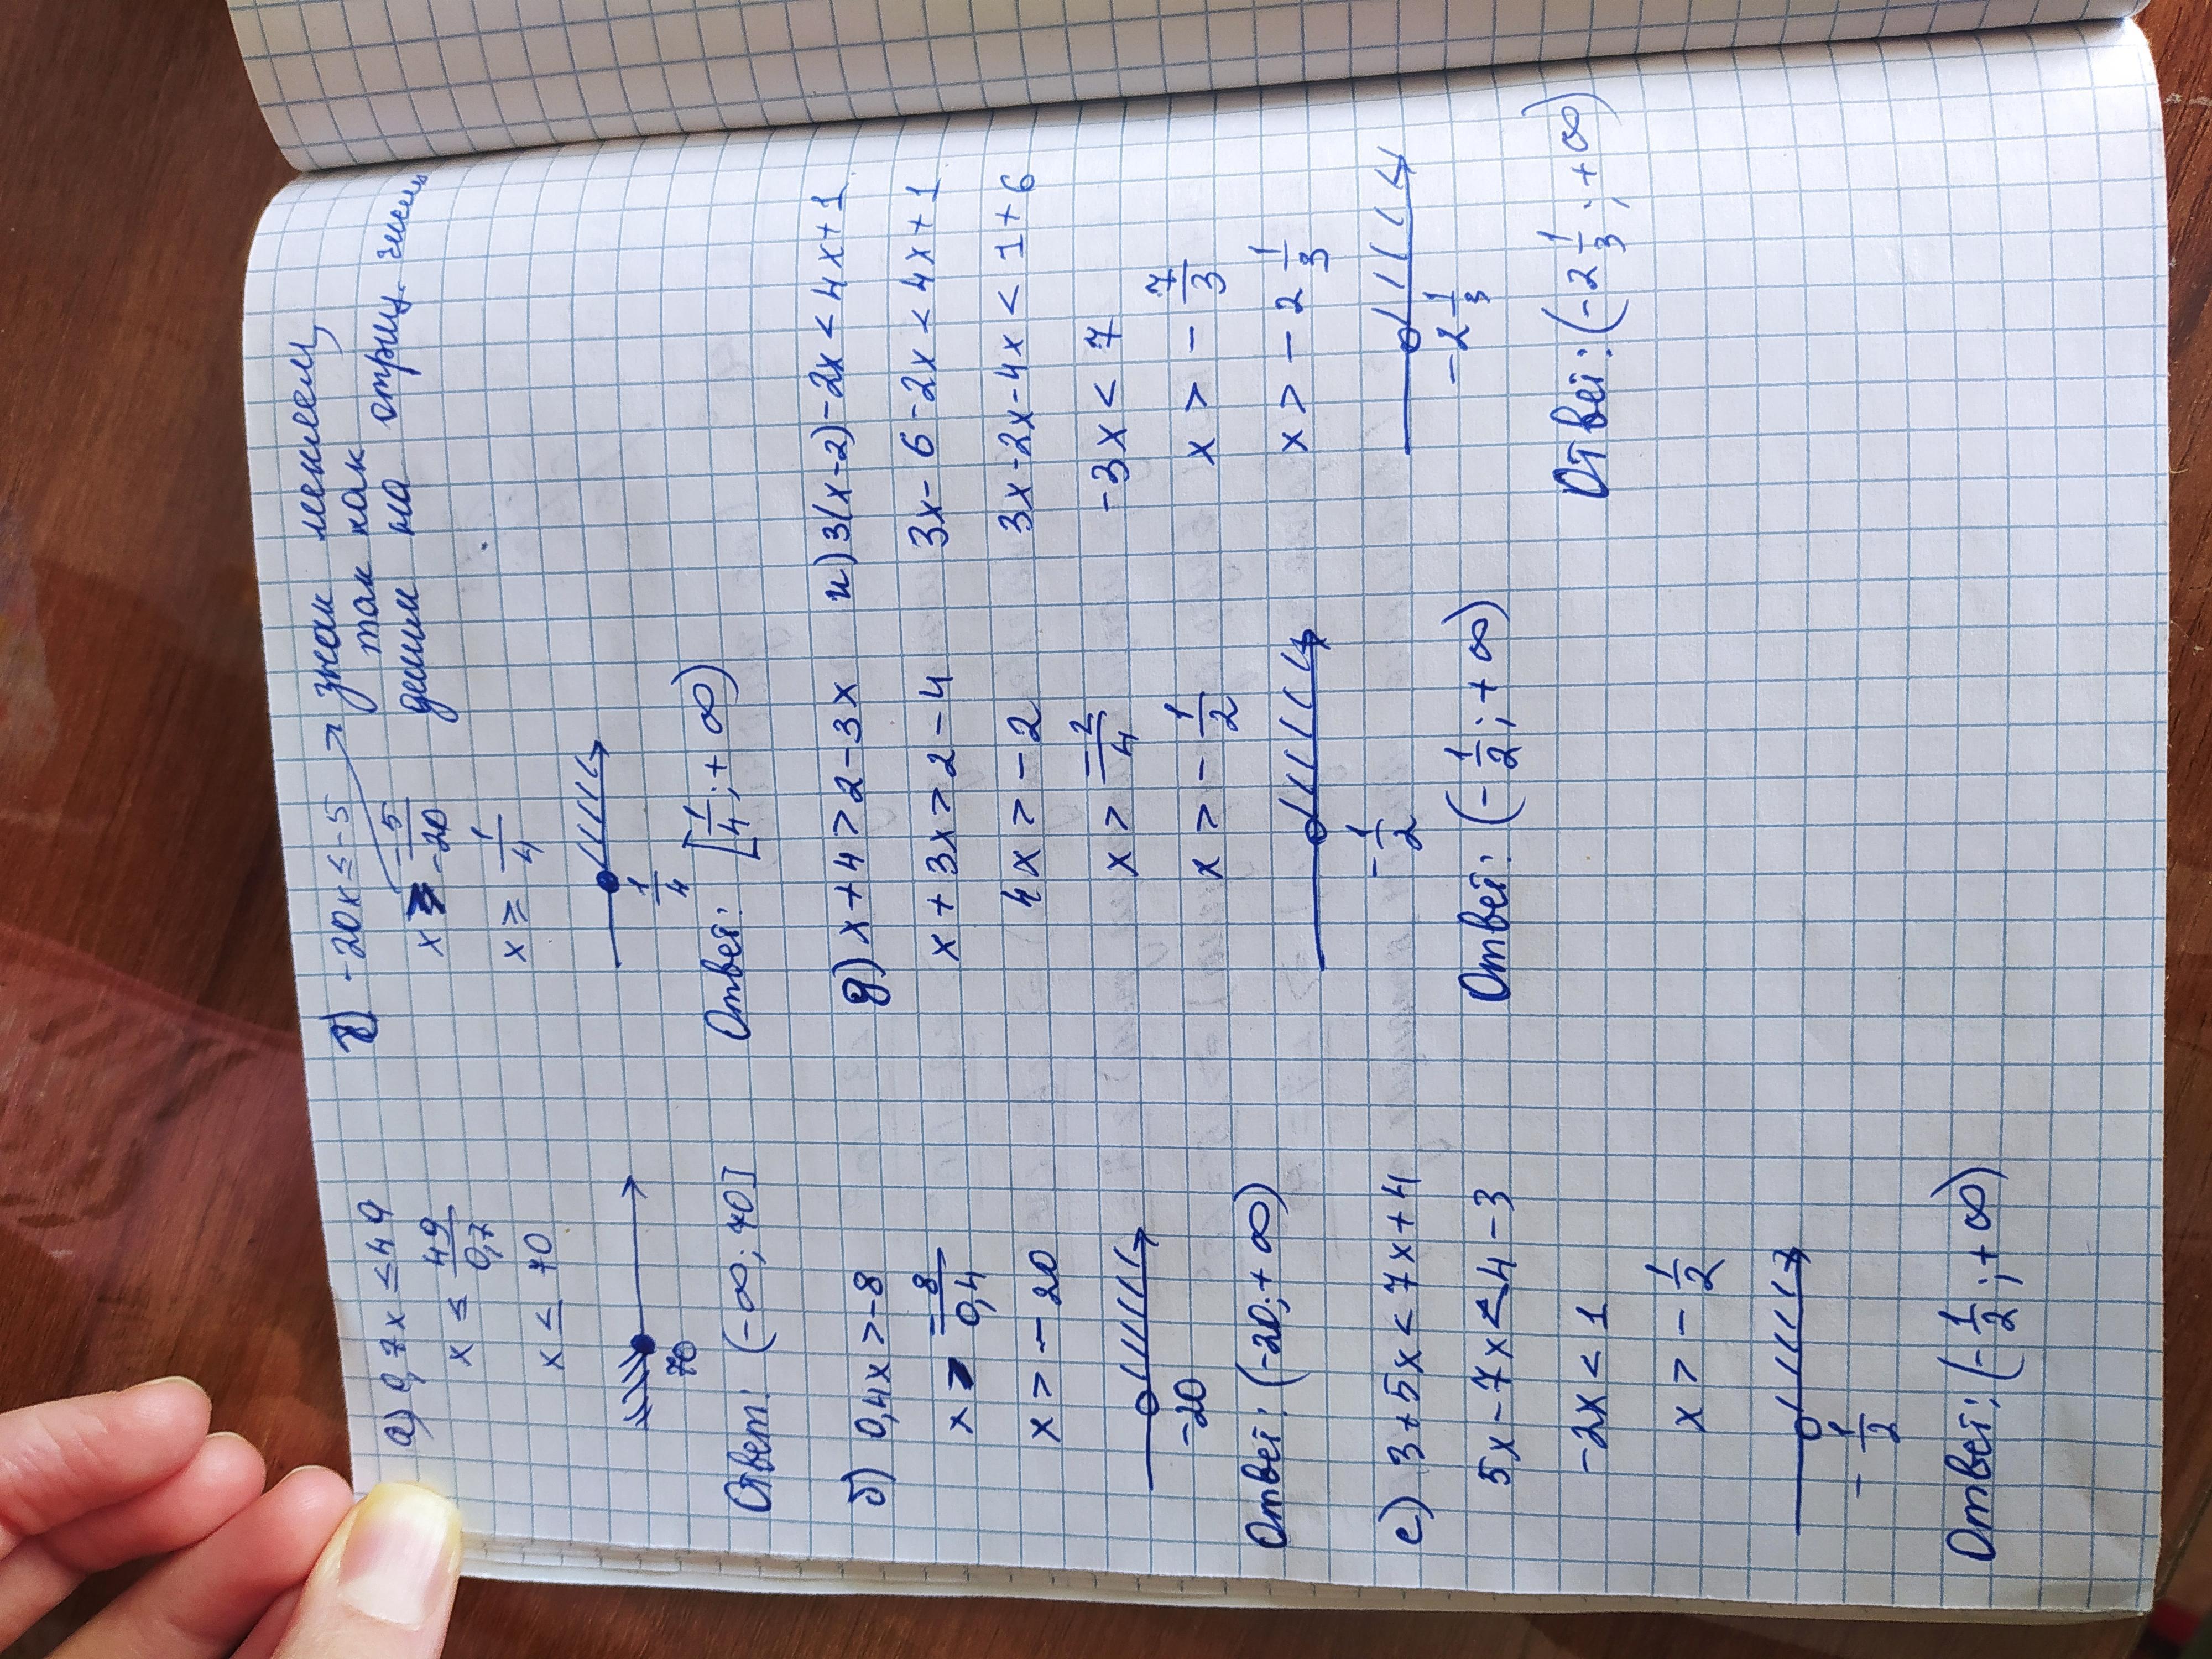 а) 0,7x ≤ 49
x ≤ 49/0,7
x ≤ 70
70
Ответ: (-∞; 70]
б) 0,4x > -8
x > -8/0,4
x > -20
-20
Ответ: (-20; +∞)
е) 3 + 5x < 7x + 4
5x - 7x < 4 - 3
-2x < 1
x > - 1/2
- 1/2
Ответ: (- 1/2; +∞)
г) -20x ≤ -5
x ≥ -5/-20
знак меняем,
так как
делим на отриц. число
x ≥ 1/4
1/4
Ответ: [1/4; +∞)
д) x + 4 > 2 - 3x
x + 3x > 2 - 4
4x > -2
x > -2/4
x > - 1/2
- 1/2
Ответ: (- 1/2; +∞)
и) 3(x-2) - 2x < 4x + 1
3x - 6 - 2x < 4x + 1
3x - 2x - 4x < 1 + 6
-3x < 7
x > - 7/3
x > - 2 1/3
-2 1/3
Ответ: (-2 1/3; +∞)